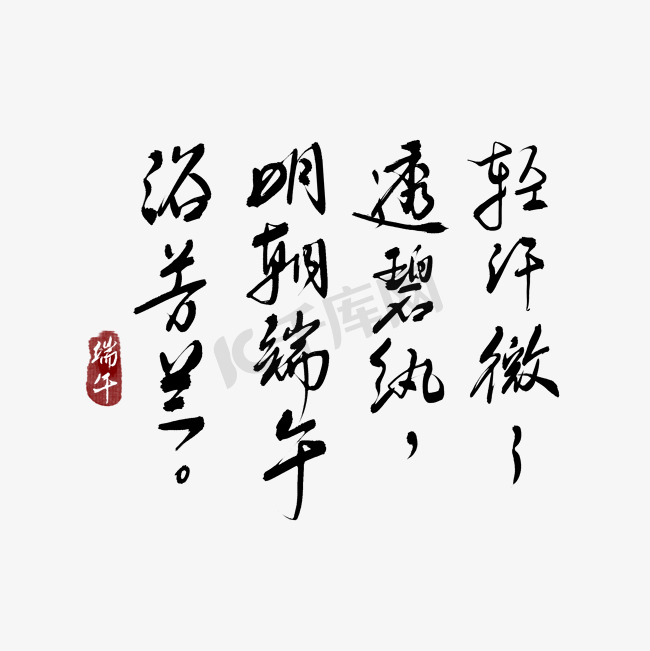 轻汗微々
透碧纨，
明朝端午
浴芳兰。
端午
千库网